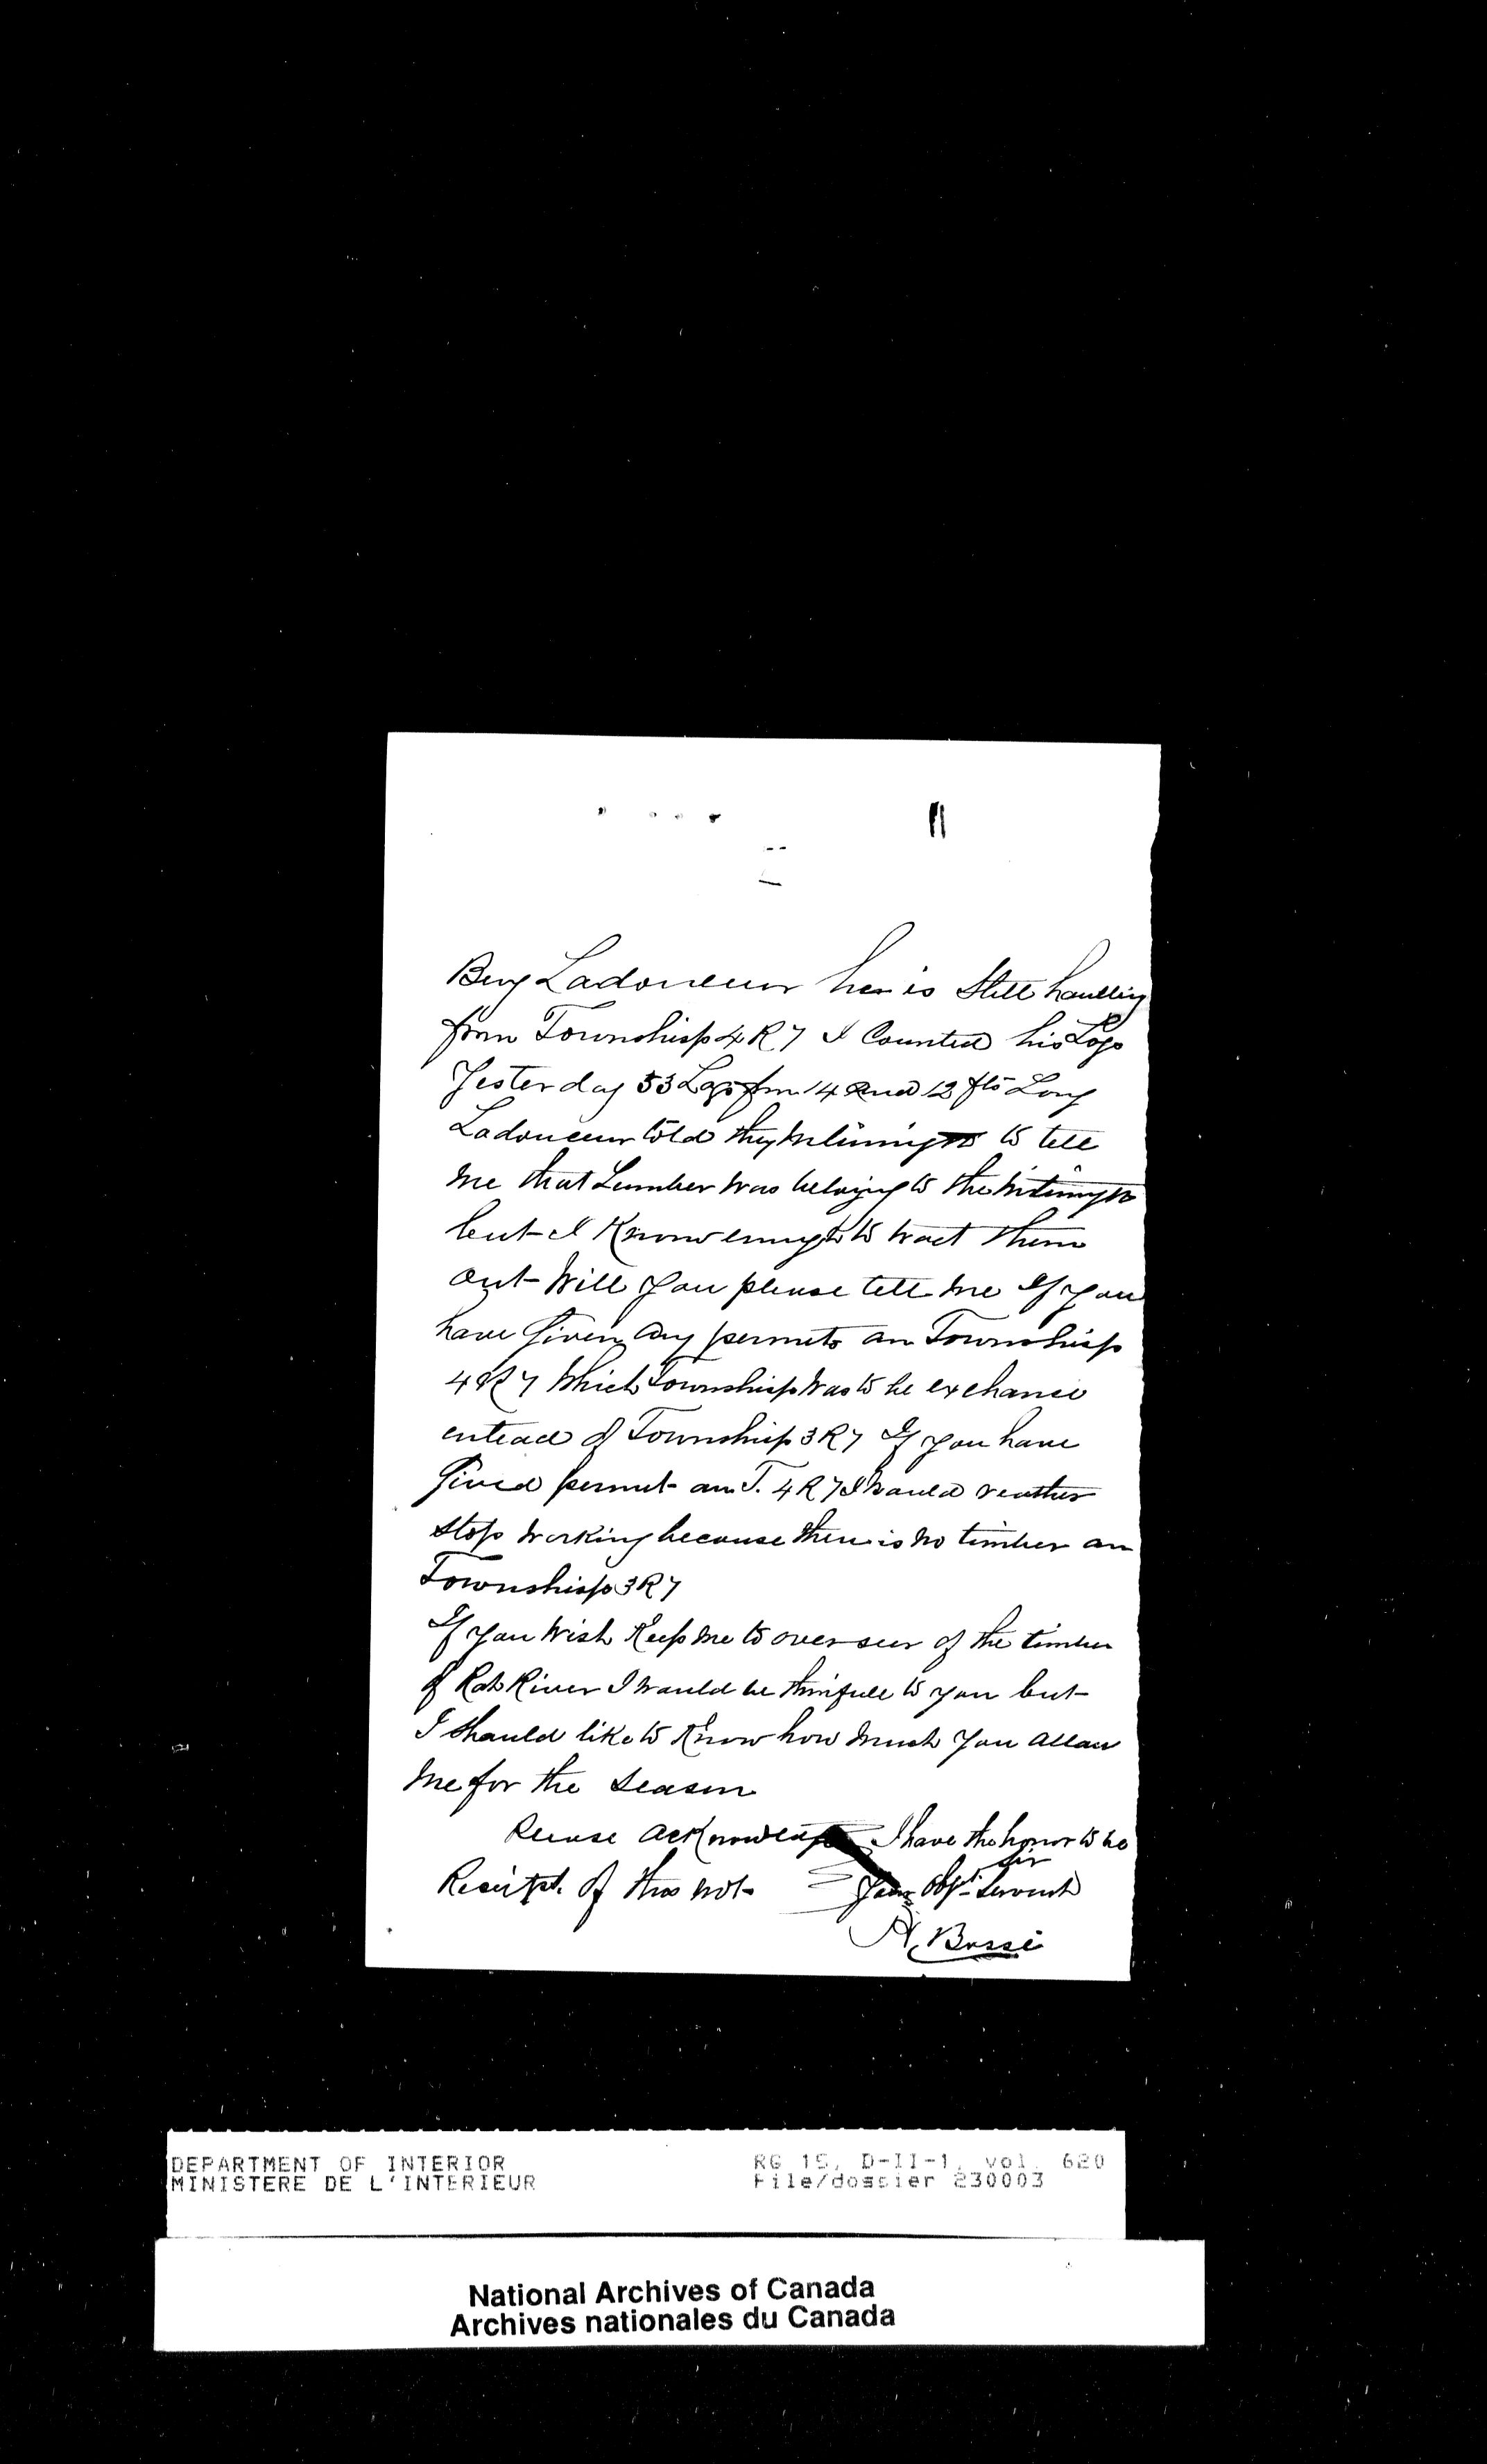 Benj Ladouceur he is Still haulling
from Township 4 R 7 I Counted his Logs
Yesterday 53 Logs from 14 and 12 fts Long
Ladouceur told to tell
me that Lumber was belonging to the
but I Know enough to tract them
out Will you please tell me If you
have Given any permits an Township
4 R 7 Which Township was to be exchance
entead of Township 3 R 7 If you have
Gived permit an T. 4 R 7 I would reather
stop working because there is no timber an
Township 3 R 7
If you Wish Keep me to overseer of the timber
of Rat River I would be thinfull to you but
I should like to Know how much you allow
me for the Season
Please acKnowledge I have the honor to be
Sir
Receipt of this not your Obt Servent
A, Bossé
DEPARTMENT OF INTERIOR
MINISTERE DE L'INTERIEUR
RG 15, D-II-1, vol. 620
File/dossier 230003
National Archives of Canada
Archives nationales du Canada